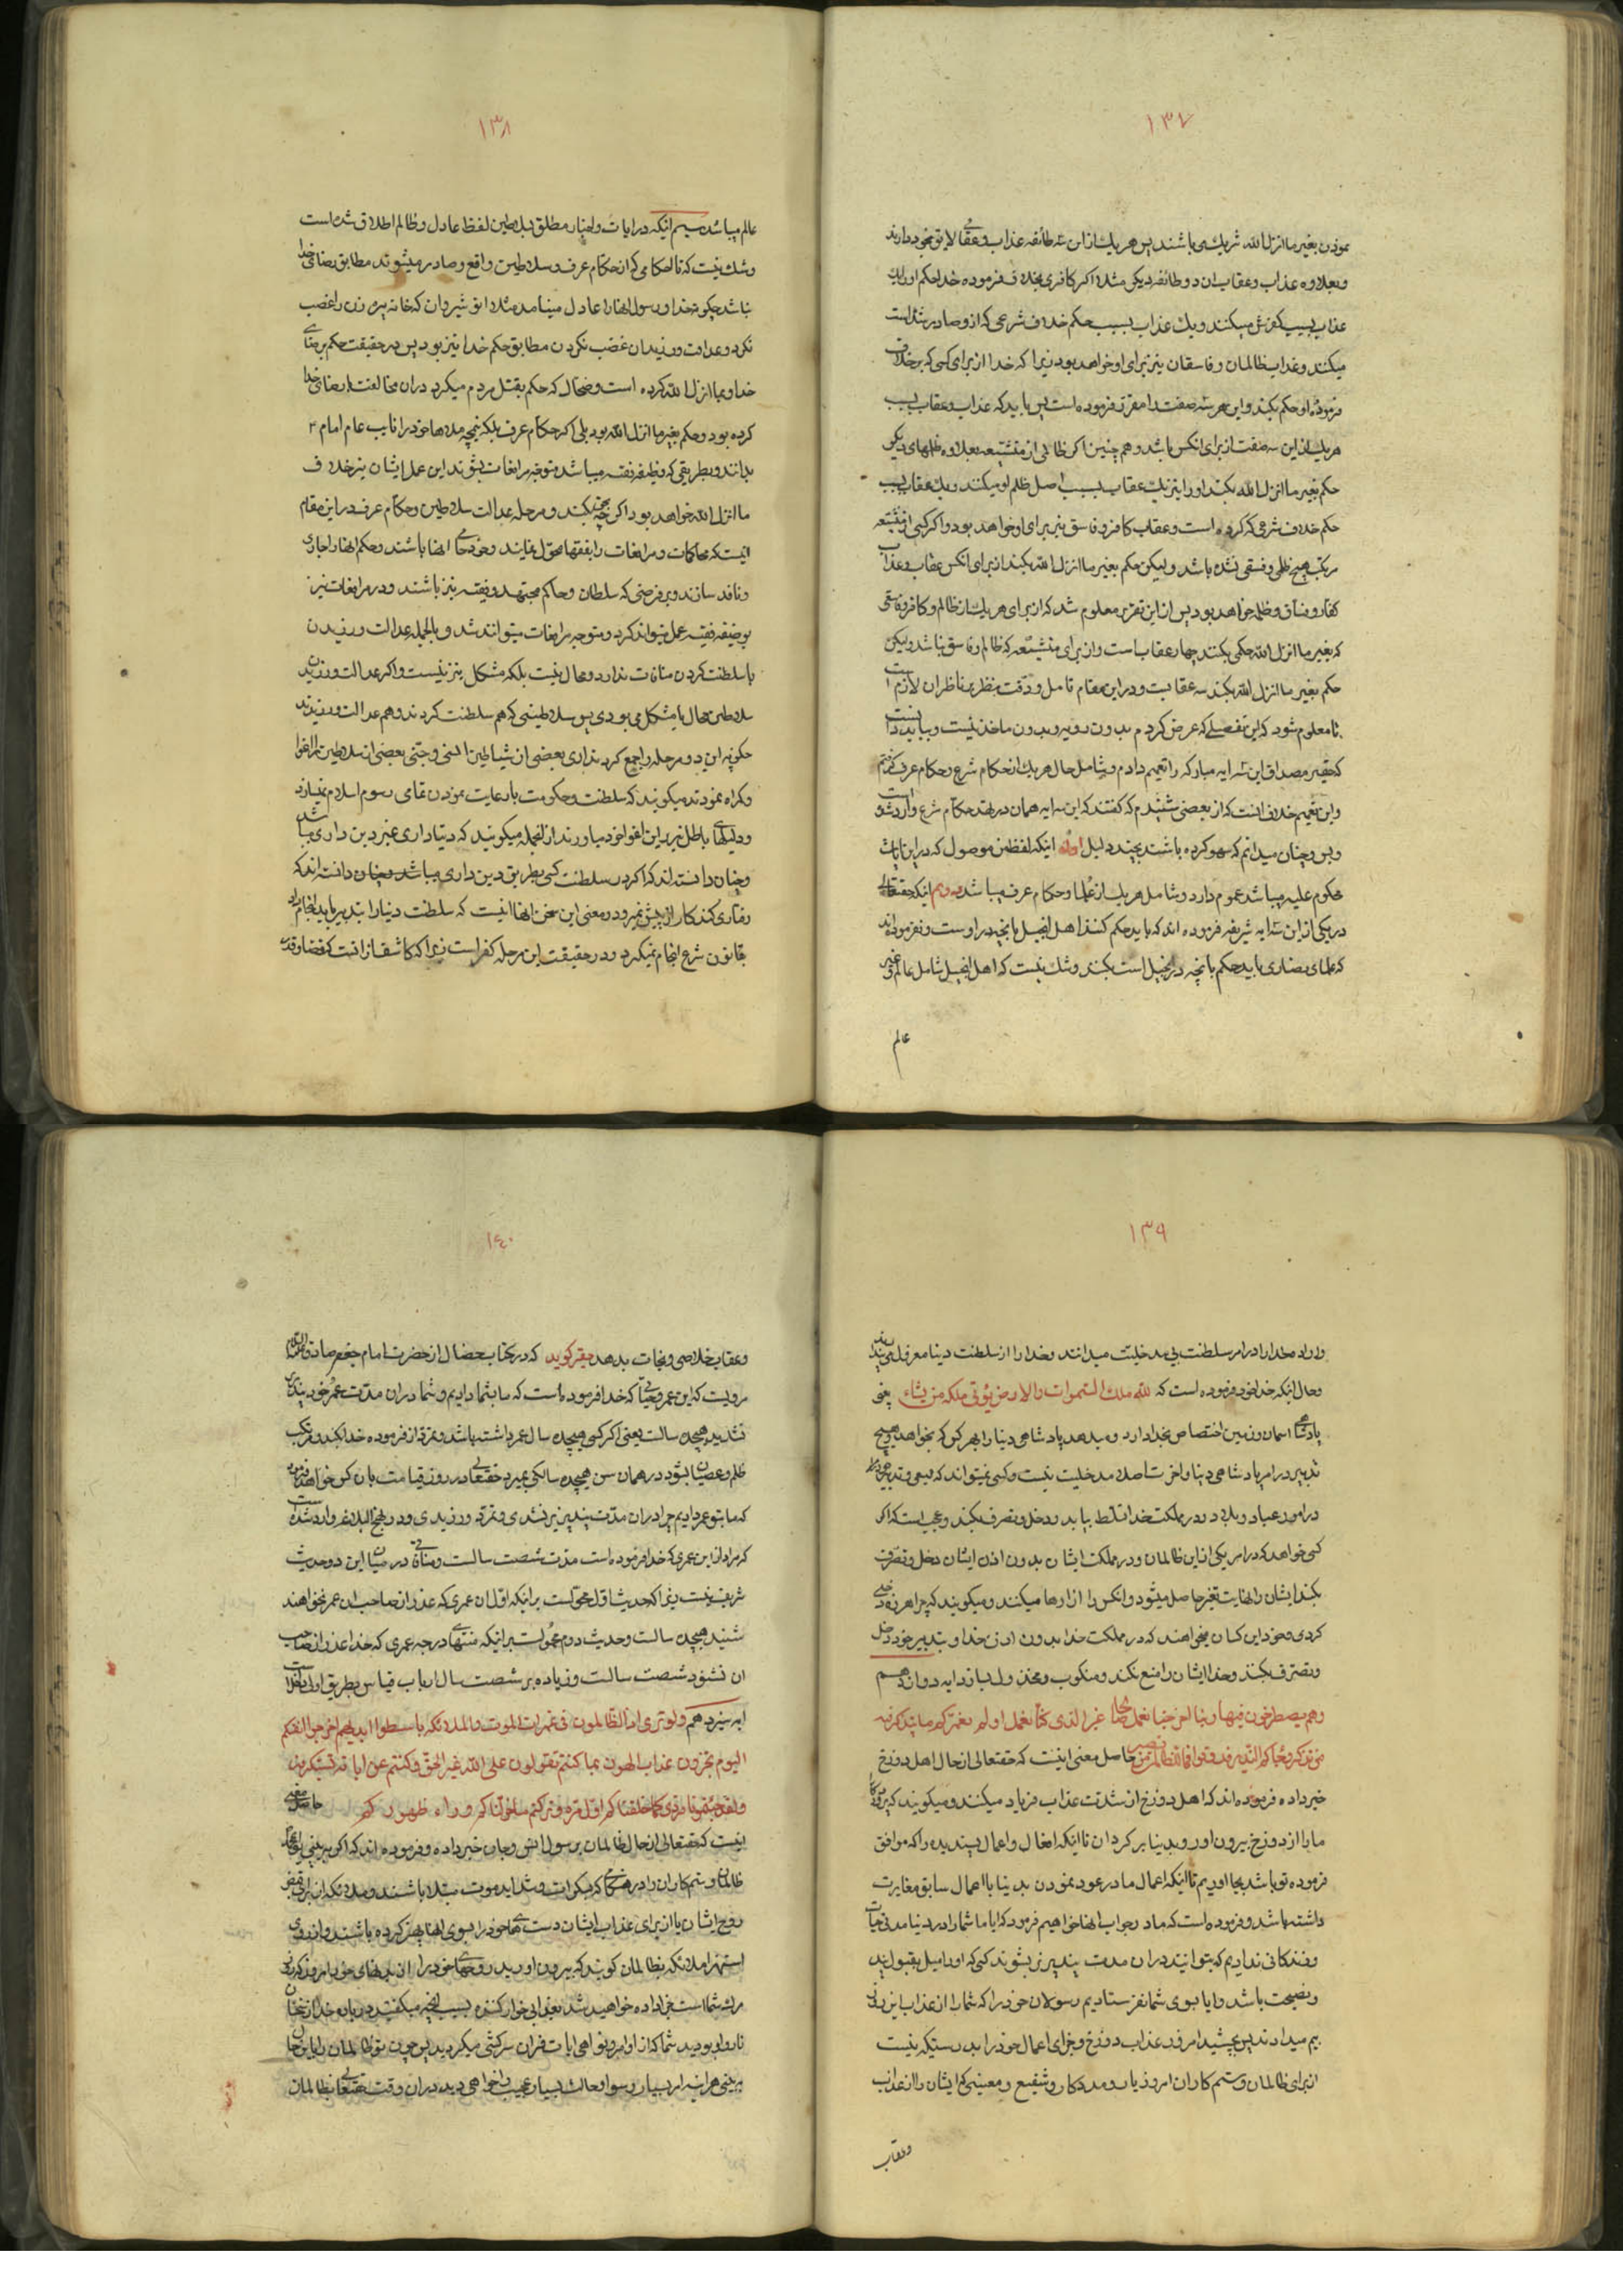 ١٣٧
نمودن بغیر ما انزل الله شریک می باشند پس هر یک از این سه طائفه عذاب و عقابی لایق بخود دارند
و بعلاوه عذاب و عقاب ان دو طائفه دیکر مثلا اکر کافری بخلاف فرموده خدا حکم او را یک
عذاب بسبب کفرش میکنند و یک عذاب بسبب حکم خلاف شرعی که از او صادر شده است
میکنند و عذاب ظالمان و فاسقان نیز برای او خواهد بود زیرا که خدا از برای کسی که بر خلاف
فرموده او حکم بکند این هر سه صفت را مقرر فرموده است پس باید که عذاب و عقاب بسبب
هر یک از این سه صفت از برای انکس باشد و هم چنین اکر ظالمی از متشیعه بعلاوه ظلمهای دیکر
حکم بغیر ما انزل الله بکند او را نیز یک عقاب بسبب اصل ظلم او میکنند و یک عقاب بسبب
حکم خلاف شرعی که کرده است و عقاب کافر و فاسق نیز برای او خواهد بود و اکر کسی از متشیعه
مرتکب هیچ ظلمی و فسقی نشده باشد و لیکن حکم بغیر ما انزل الله بکند از برای انکس عقاب و عذاب
کفار و فساق و ظلمه خواهد بود پس از این تقریر معلوم شد که از برای هر یک از ظالم و کافر و فاسقی
که بغیر ما انزل الله حکمی بکند چهار عقاب است و از برای متشیعه که ظالم و فاسق نباشد و لیکن
حکم بغیر ما انزل الله بکند سه عقابست و در این مقام تامل و دقت بنظر ناظران لازم است
تا معلوم شود که این تفصیلی که عرض کردم بدون رویه و بدون ماخذ نیست و بباید دانست
که حقیر مصداق این سه ایه مبارکه را تعمیم دادم و شامل حال هر یک از حکام شرع و حکام عرف کفتم
و این تعمیم خلاف انست که از بعضی شنیدم که کفتند که این سه ایه همان در بعد حکام شرع وارد شده است
و بس و چنان میدانم که سهو کرده باشند بچند دلیل اول اینکه لفظ من موصول که در این ایات
محکوم علیه میباشد عموم دارد و شامل هر یک از علما و حکام عرف میباشد دویم اینکه حقتعالی
در یکی از این سه ایه شریفه فرموده اند که باید حکم کنند اهل انجیل بانچه در اوست و نفرموده اند
که علمای نصاری باید حکم بانچه در انجیل است بکنند و شک نیست که اهل انجیل شامل عالم و غیر
عالم
١٣٨
عالم میباشد سیم اینکه در ایات و اخبار مطلق بسلاطین لفظ عادل و ظالم اطلاق شده است
و شک نیست که تا احکامی که از حکام عرف و سلاطین واقع و صادر میشوند مطابق رضای خدا
نباشد چکونه خدا و رسول انها را عادل مینامد مثلا انوشیروان که خانه پیره زن را غصب
نکرد و عدالت ورزیدان غصب نکردن مطابق حکم خدا نیز بود پس در حقیقت حکم برضای
خدا و بما انزل الله کرده است و ضحاک که حکم بقتل مردم میکرد در ان مخالفت رضای خدا
کرده بود و حکم بغیر ما انزل الله بود بلی اکر حکام عرف بلکه نیمچه ملاها خود را نایب عام امام ع
بدانند و بطریقی که وظیفه فقیه میباشد متوجه مرافعات بشوند این عمل ایشان نیز خلاف
ما انزل الله خواهد بود اکر چه بحق بکنند و مرحله عدالت سلاطین و حکام عرف در این مقام
اینست که محاکمات و مرافعات را بفقها محول نمایند و خود حامی انها باشند و حکم انها را جاری
و نافذ سازند و بر فرضی که سلطان و حاکم مجتهد و فقیه نیز باشند و در مرافعات نیز
بوضیفه فقیه عمل میتواند کرد و متوجه مرافعات میتوانند شد و بالجمله عدالت ورزیدن
با سلطنت کردن منافات ندارد و محال نیست بلکه مشکل نیز نیست و اکر عدالت ورزیدن
سلاطین محال یا مشکل می بودی پس سلاطینی که هم سلطنت کردند و هم عدالت ورزیدند
چکونه این دو مرحله را جمع کردند اری بعضی از شیاطین انسی و جنی بعضی از سلاطین را اغوا
و کمراه نمودند میکویند که سلطنت و حکومت با رعایت نمودن تمامی رسوم اسلام نمیسازد
و دلیلهای باطل نیز بر این لغو خود میاورند از انجمله میکویند که دنیا داری غیر دین داری میباشد
و چنان دانسته اند که اکر در سلطنت کسی بطریق دین داری میباشد و چنان دانسته اند که
رفتاری کند کار از پیش نمیرود و معنی این سخن انها اینست که سلطنت دنیا را بتدبیر باید انجام داد
بقانون شرع انجام نمیکیرد و در حقیقت این مرحله کفر است زیرا که کاشف از انست که قضا و قدر
١٣٩
و اراده خدا را در امر سلطنت بی مدخلیت میدانند و خدا را از سلطنت دنیا معزول میدانند
و حال انکه خدا خود فرموده است که لله ملک السموات والارض یؤتی ملکه من یشاء یعنی
پادشاهی اسمان و زمین اختصاص بخدا دارد و میدهد پادشاهی دنیا را بهر کس که بخواهد و هیچ
تدبیر در امر پادشاهی دنیا و اخرت اصلا مدخلیت نیست و کسی نمیتواند که بسعی و تدبیر خود
در امور عباد و بلاد و در مملکت خدا تسلط بیابد و دخل و تصرف بکند و عجب است که اکر
کسی خواهد که در امر یکی از این ظالمان و در مملکت ایشان بدون اذن ایشان دخل و تصرف
بکند ایشان را نهایت تغیر حاصل میشود و انکس را ازارها میکنند و میکویند که چرا هرزه دخلی
کردی و خود این کسان میخواهند که در مملکت خدا بدون اذن خدا و بتدبیر خود دخل
و تصرف بکنند و خدا ایشان را منع نکند و منکوب و مخذول نسازد ایه دوازدهم
وهم یصطرخون فیها ربنا اخرجنا نعمل صالحا غیر الذی کنا نعمل اولم نعمرکم ما یتذکر فیه
من تذکر وجاءکم النذیر فذوقوا فما للظالمین من نصیر حاصل معنی اینست که حقتعالی از حال اهل دوزخ
خبر داده فرموده اند که اهل دوزخ از شدت عذاب فریاد میکنند و میکویند که پروردکارا
ما را از دوزخ بیرون اور و بدنیا بر کردان تا اینکه افعال و اعمال پسندیده را که موافق
فرموده تو باشد بجا اوریم تا اینکه اعمال ما در عود نمودن بدنیا با اعمال سابق مغایرت
داشته باشد و فرموده است که ما در جواب انها خواهیم فرمود که ایا ما شما را در دنیا مدتی حیات
و زندکانی ندادیم که بتوانید در ان مدت پند پذیر بشوند کسی که او را میل بقبول پند
و نصیحت باشد و ایا بسوی شما نفرستادیم رسولان خود را که شما را از عذاب این روز
بیم میدادند پس بچشید امروز عذاب دوزخ و جزای اعمال خود را بدرستیکه نیست
از برای ظالمان و ستم کاران امروز یار و مددکار و شفیع و معینی که ایشان را از عذاب
و عقاب
١٤٠
و عقاب خلاصی و نجات بدهد حقیر کوید که در کتاب خصال از حضرت امام جعفر صادق علیه السلام
مرویست که این عمر و عتابی که خدا فرموده است که ما بشما دادیم و شما در ان مدت عمر خود پند پذیر
نشدید هیجده سالست یعنی اکر کسی هیجده سال عمر داشته باشد و تمرد از فرموده خدا بکند و مرتکب
ظلم و عصیان بشود در همان سن هیجده سالکی بمیرد حقتعالی در روز قیامت بان کس خواهد فرمود
که ما بتو عمر دادیم چرا در ان مدت پند پذیر نشدی و تمرد ورزیدی و در نهج البلاغه وارد شده است
که مراد از این عمری که خدا فرموده است مدت شصت سالست و منافاتی در میان این دو حدیث
شریف نیست زیرا که حدیث اول محمولست بر اینکه اول ان عمری که عذر از صاحب ان عمر نخواهند
شنید هیجده سالست و حدیث دوم محمولست بر اینکه منتهای درجه عمری که خدا عذر از صاحب
ان نشنود شصت سالست و زیاده بر شصت سال از باب قیاس بطریق اولی است
ایه سیزدهم ولو تری اذ الظالمون فی غمرات الموت والملائکه باسطوا ایدیهم اخرجوا انفسکم
الیوم تجزون عذاب الهون بما کنتم تقولون علی الله غیر الحق وکنتم عن ایاته تستکبرون
ولقد جئتمونا فرادی کما خلقناکم اول مرة وترکتم ما خولناکم وراء ظهورکم حاصل معنی
اینست که حقتعالی از حال ظالمان برسول انس و جان خبر داده و فرموده اند که اکر ببینی ای محمد
ظالمان و ستم کاران را در هنکامی که بسکرات و شداید موت مبتلا باشند و ملائکه از برای قبض
روح ایشان یا از برای عذاب ایشان دست های خود را بسوی انها پهن کرده باشند و از روی
استهزا ملائکه بظالمان کویند که بیرون اورید روحهای خود را از بدنهای خود امروز که روز
مرک شماست جزا داده خواهید شد بعذابی خوار کننده بسبب انچه میکفتید در باره خدا از سخنان
ناروا و بودید شما که از اوامر و نواهی ایات قران سرکشی میکردید پس چون تو ظالمان را باین حال
ببینی هر اینه امر بسیار رسوا و حالت بسیار عجیب را خواهی دید در ان وقت حقتعالی بظالمان